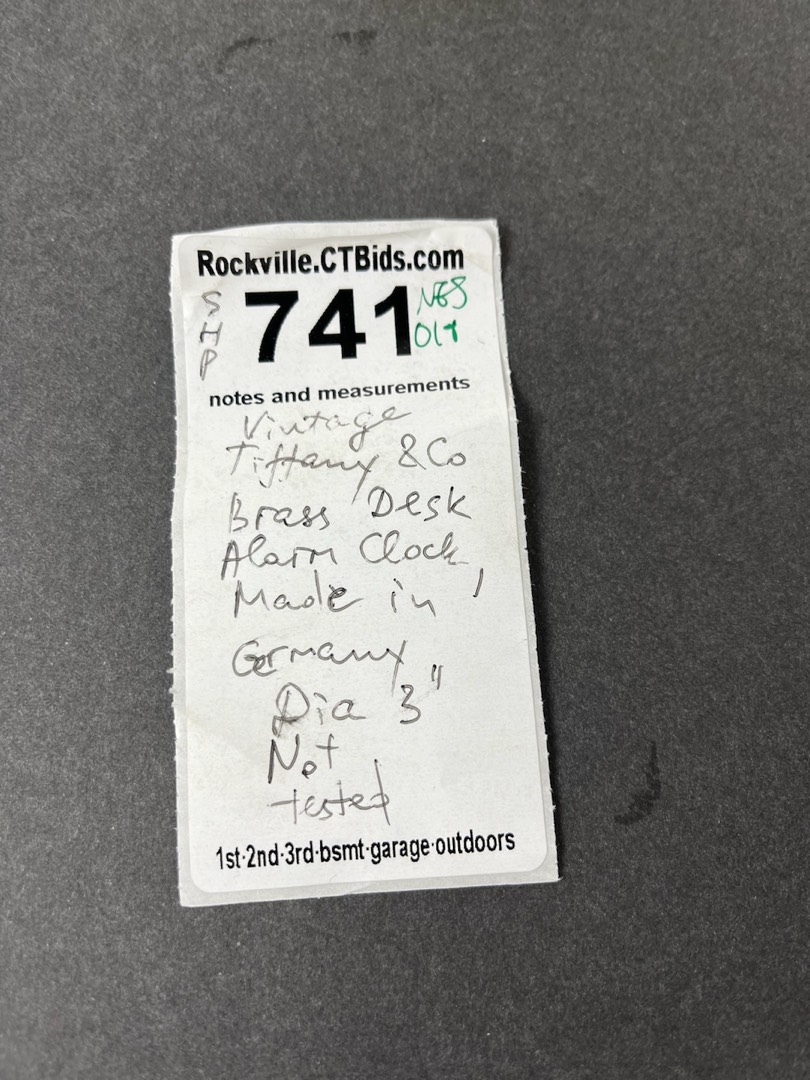 Rockville.CTBids.com
SHP
741
notes and measurements
Vintage
Tiffany & Co
Brass Desk
Alarm Clock
Made in
Germany
Dia 3"
Not
tested
1st·2nd·3rd·bsmt·garage·outdoors